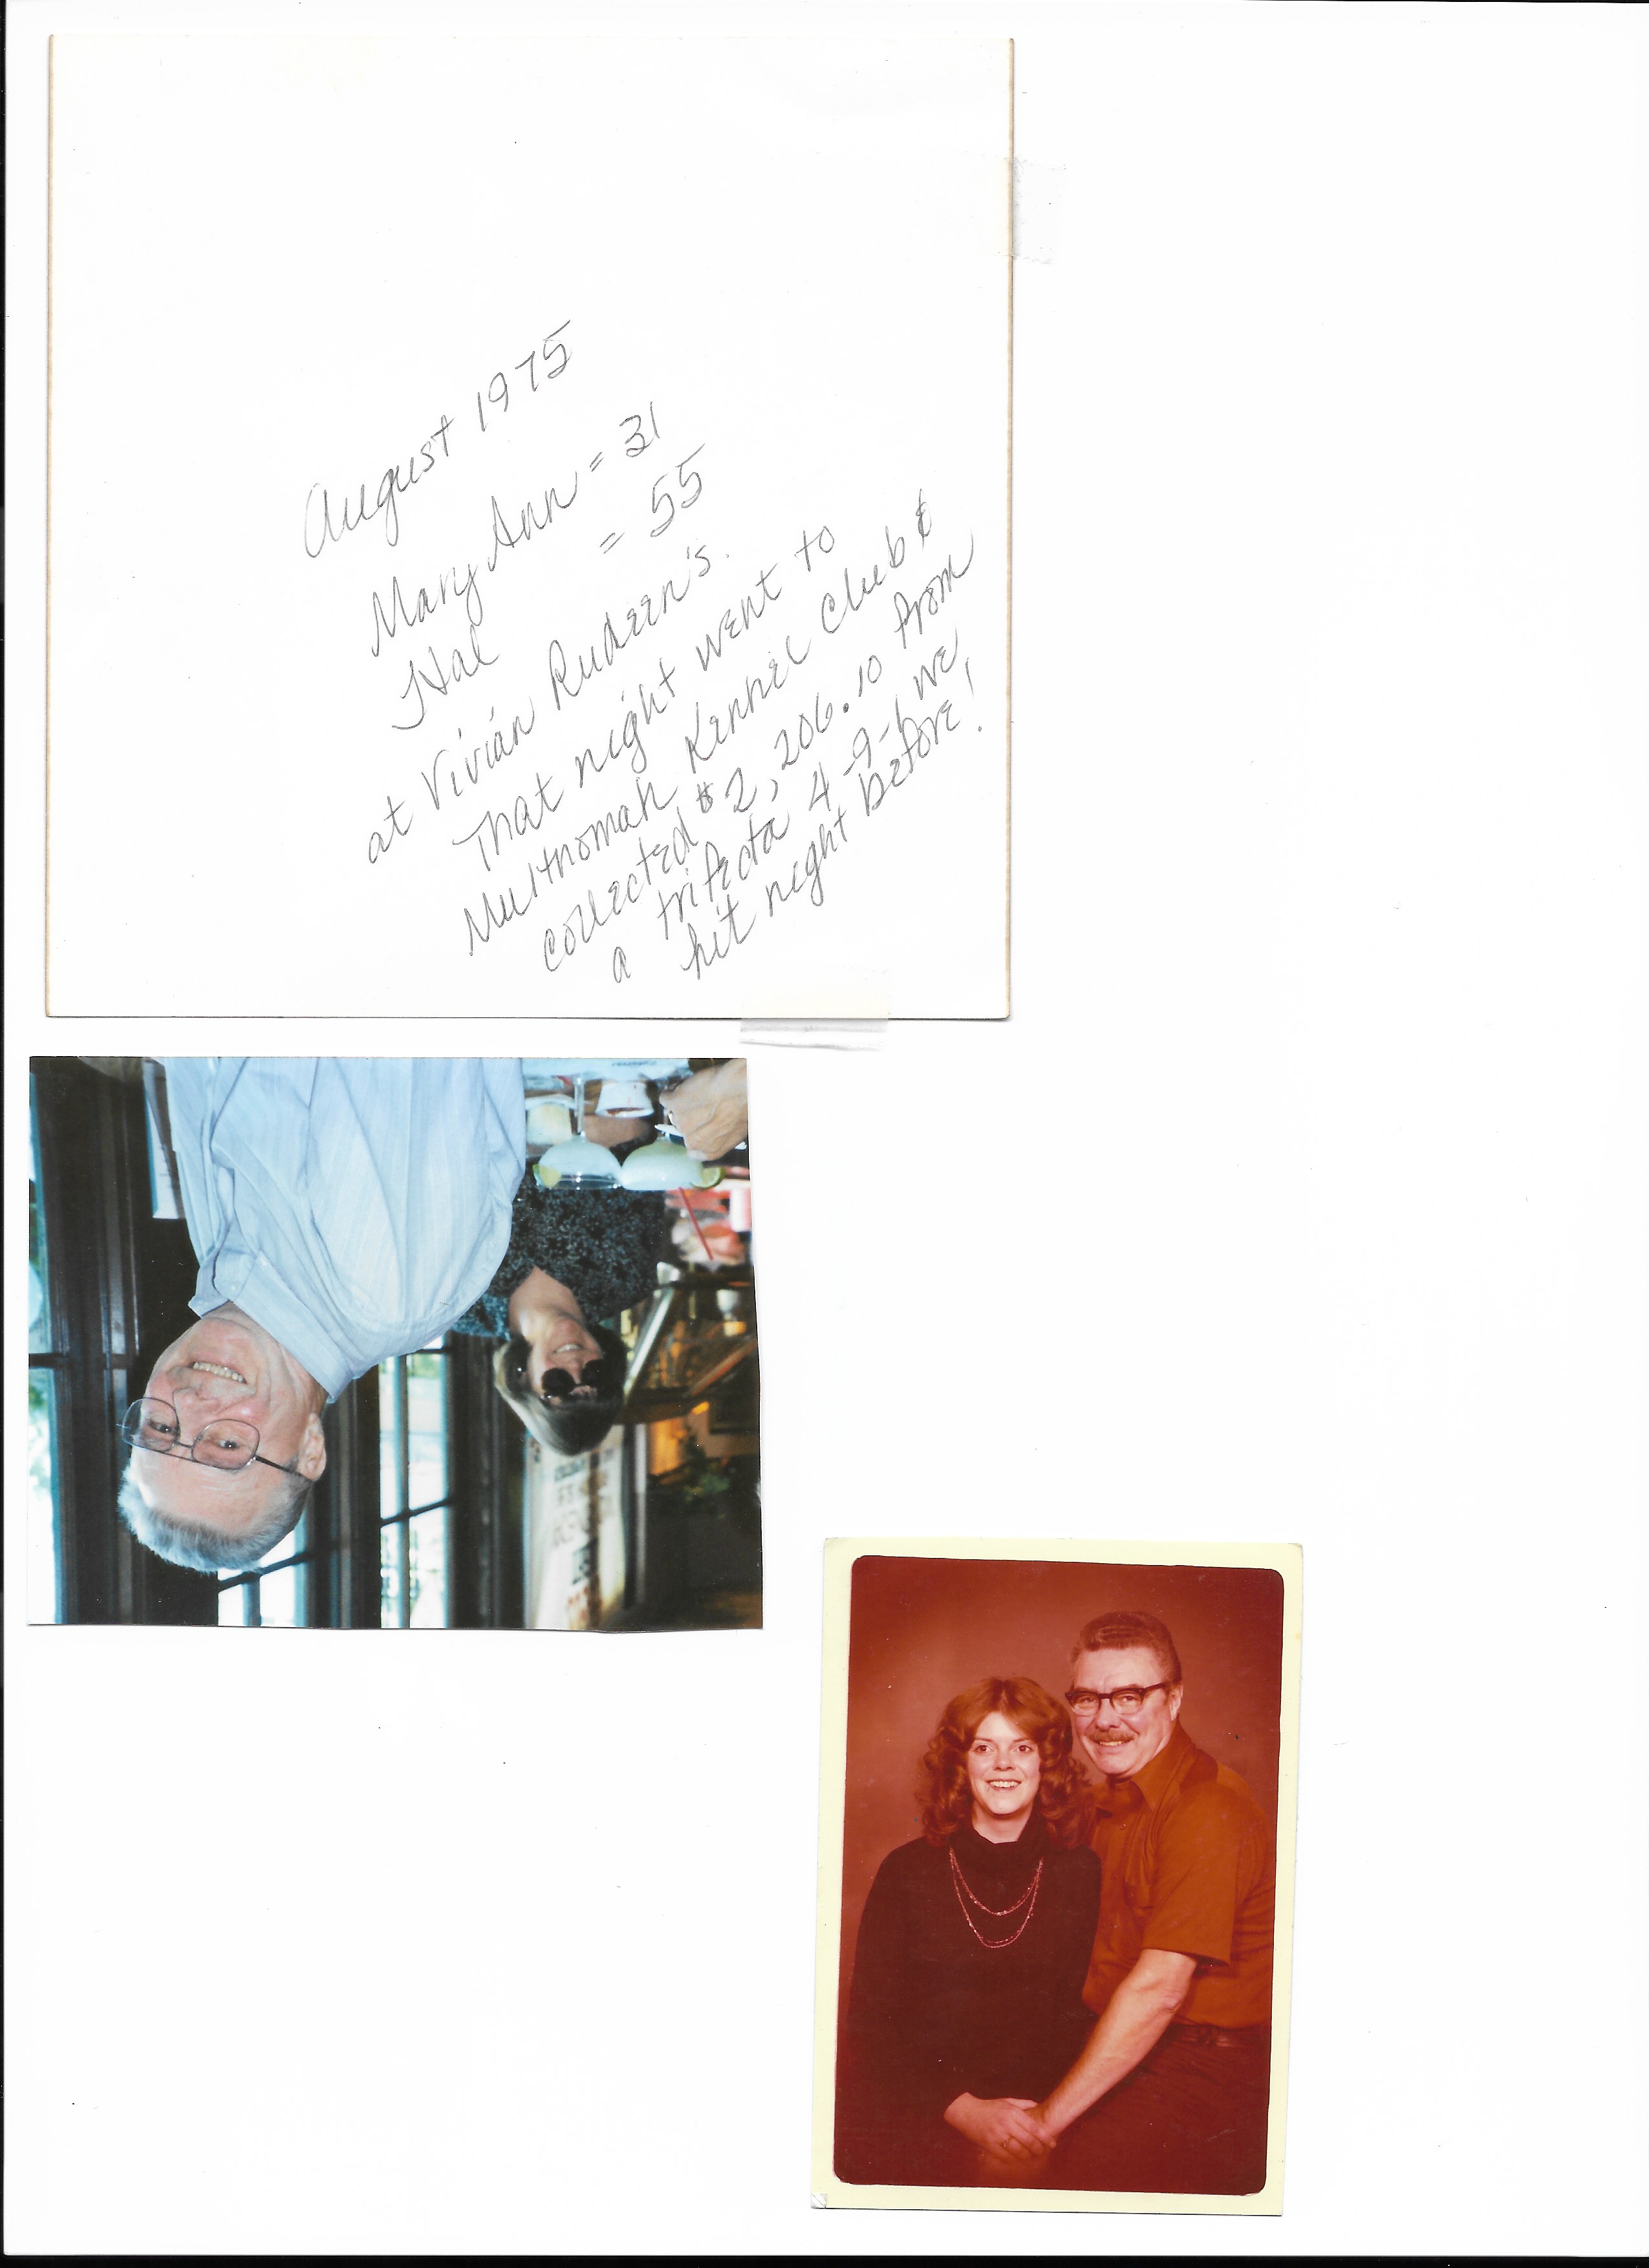 August 1975
Mary Ann = 31
Hal = 55
at Vivian Rudeen's.
That night went to
Multnomah Kennel Club &
collected $2,206.10 from
a trifecta 4-9-6 we
hit night before!